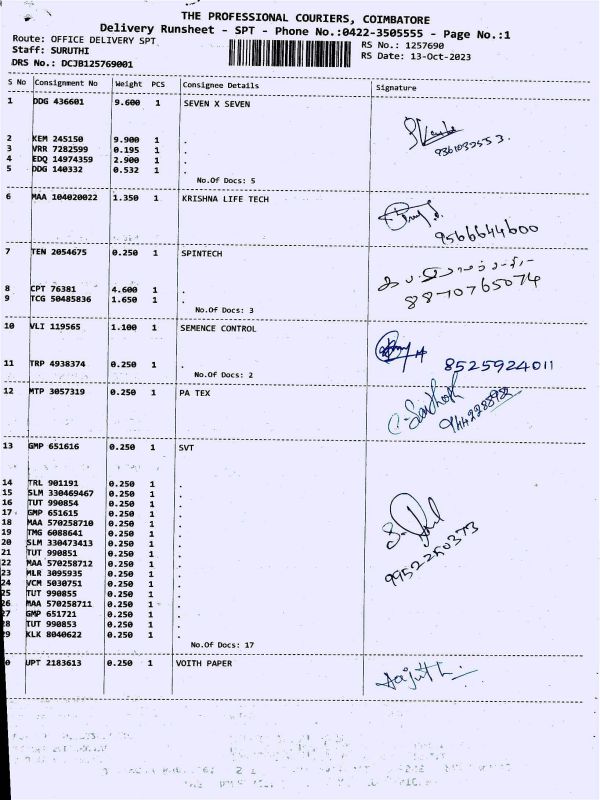 THE PROFESSIONAL COURIERS, COIMBATORE
Delivery Runsheet - SPT - Phone No.:0422-3505555 - Page No.:1
Route: OFFICE DELIVERY SPT
RS No.: 1257690
Staff: SURUTHI
RS Date: 13-Oct-2023
DRS No.: DCJB125769001
S No Consignment No Weight PCS Consignee Details Signature
1 DDG 436601 9.600 1 SEVEN X SEVEN
2 KEM 245150 9.900 1 .
9361032553.
3 VRR 7282599 0.195 1 .
4 EDQ 14974359 2.900 1 .
5 DDG 140332 0.532 1 .
No.Of Docs: 5
6 MAA 104020022 1.350 1 KRISHNA LIFE TECH
9566644600
7 TEN 2054675 0.250 1 SPINTECH
8870765074
8 CPT 76381 4.600 1 .
9 TCG 50485836 1.650 1 .
No.Of Docs: 3
10 VLI 119565 1.100 1 SEMENCE CONTROL
8525924011
11 TRP 4938374 0.250 1 .
No.Of Docs: 2
12 MTP 3057319 0.250 1 PA TEX
C. Santhosh
13 GMP 651616 0.250 1 SVT
14 TRL 901191 0.250 1 .
15 SLM 330469467 0.250 1 .
16 TUT 990854 0.250 1 .
17 GMP 651615 0.250 1 .
18 MAA 570258710 0.250 1 .
19 TMG 6088641 0.250 1 .
20 SLM 330473413 0.250 1 .
21 TUT 990851 0.250 1 .
22 MAA 570258712 0.250 1 .
23 MLR 3095935 0.250 1 .
24 VCM 5030751 0.250 1 .
25 TUT 990855 0.250 1 .
26 MAA 570258711 0.250 1 .
27 GMP 651721 0.250 1 .
28 TUT 990853 0.250 1 .
29 KLK 8040622 0.250 1 .
9952250373
No.Of Docs: 17
0 UPT 2183613 0.250 1 VOITH PAPER
Aajith